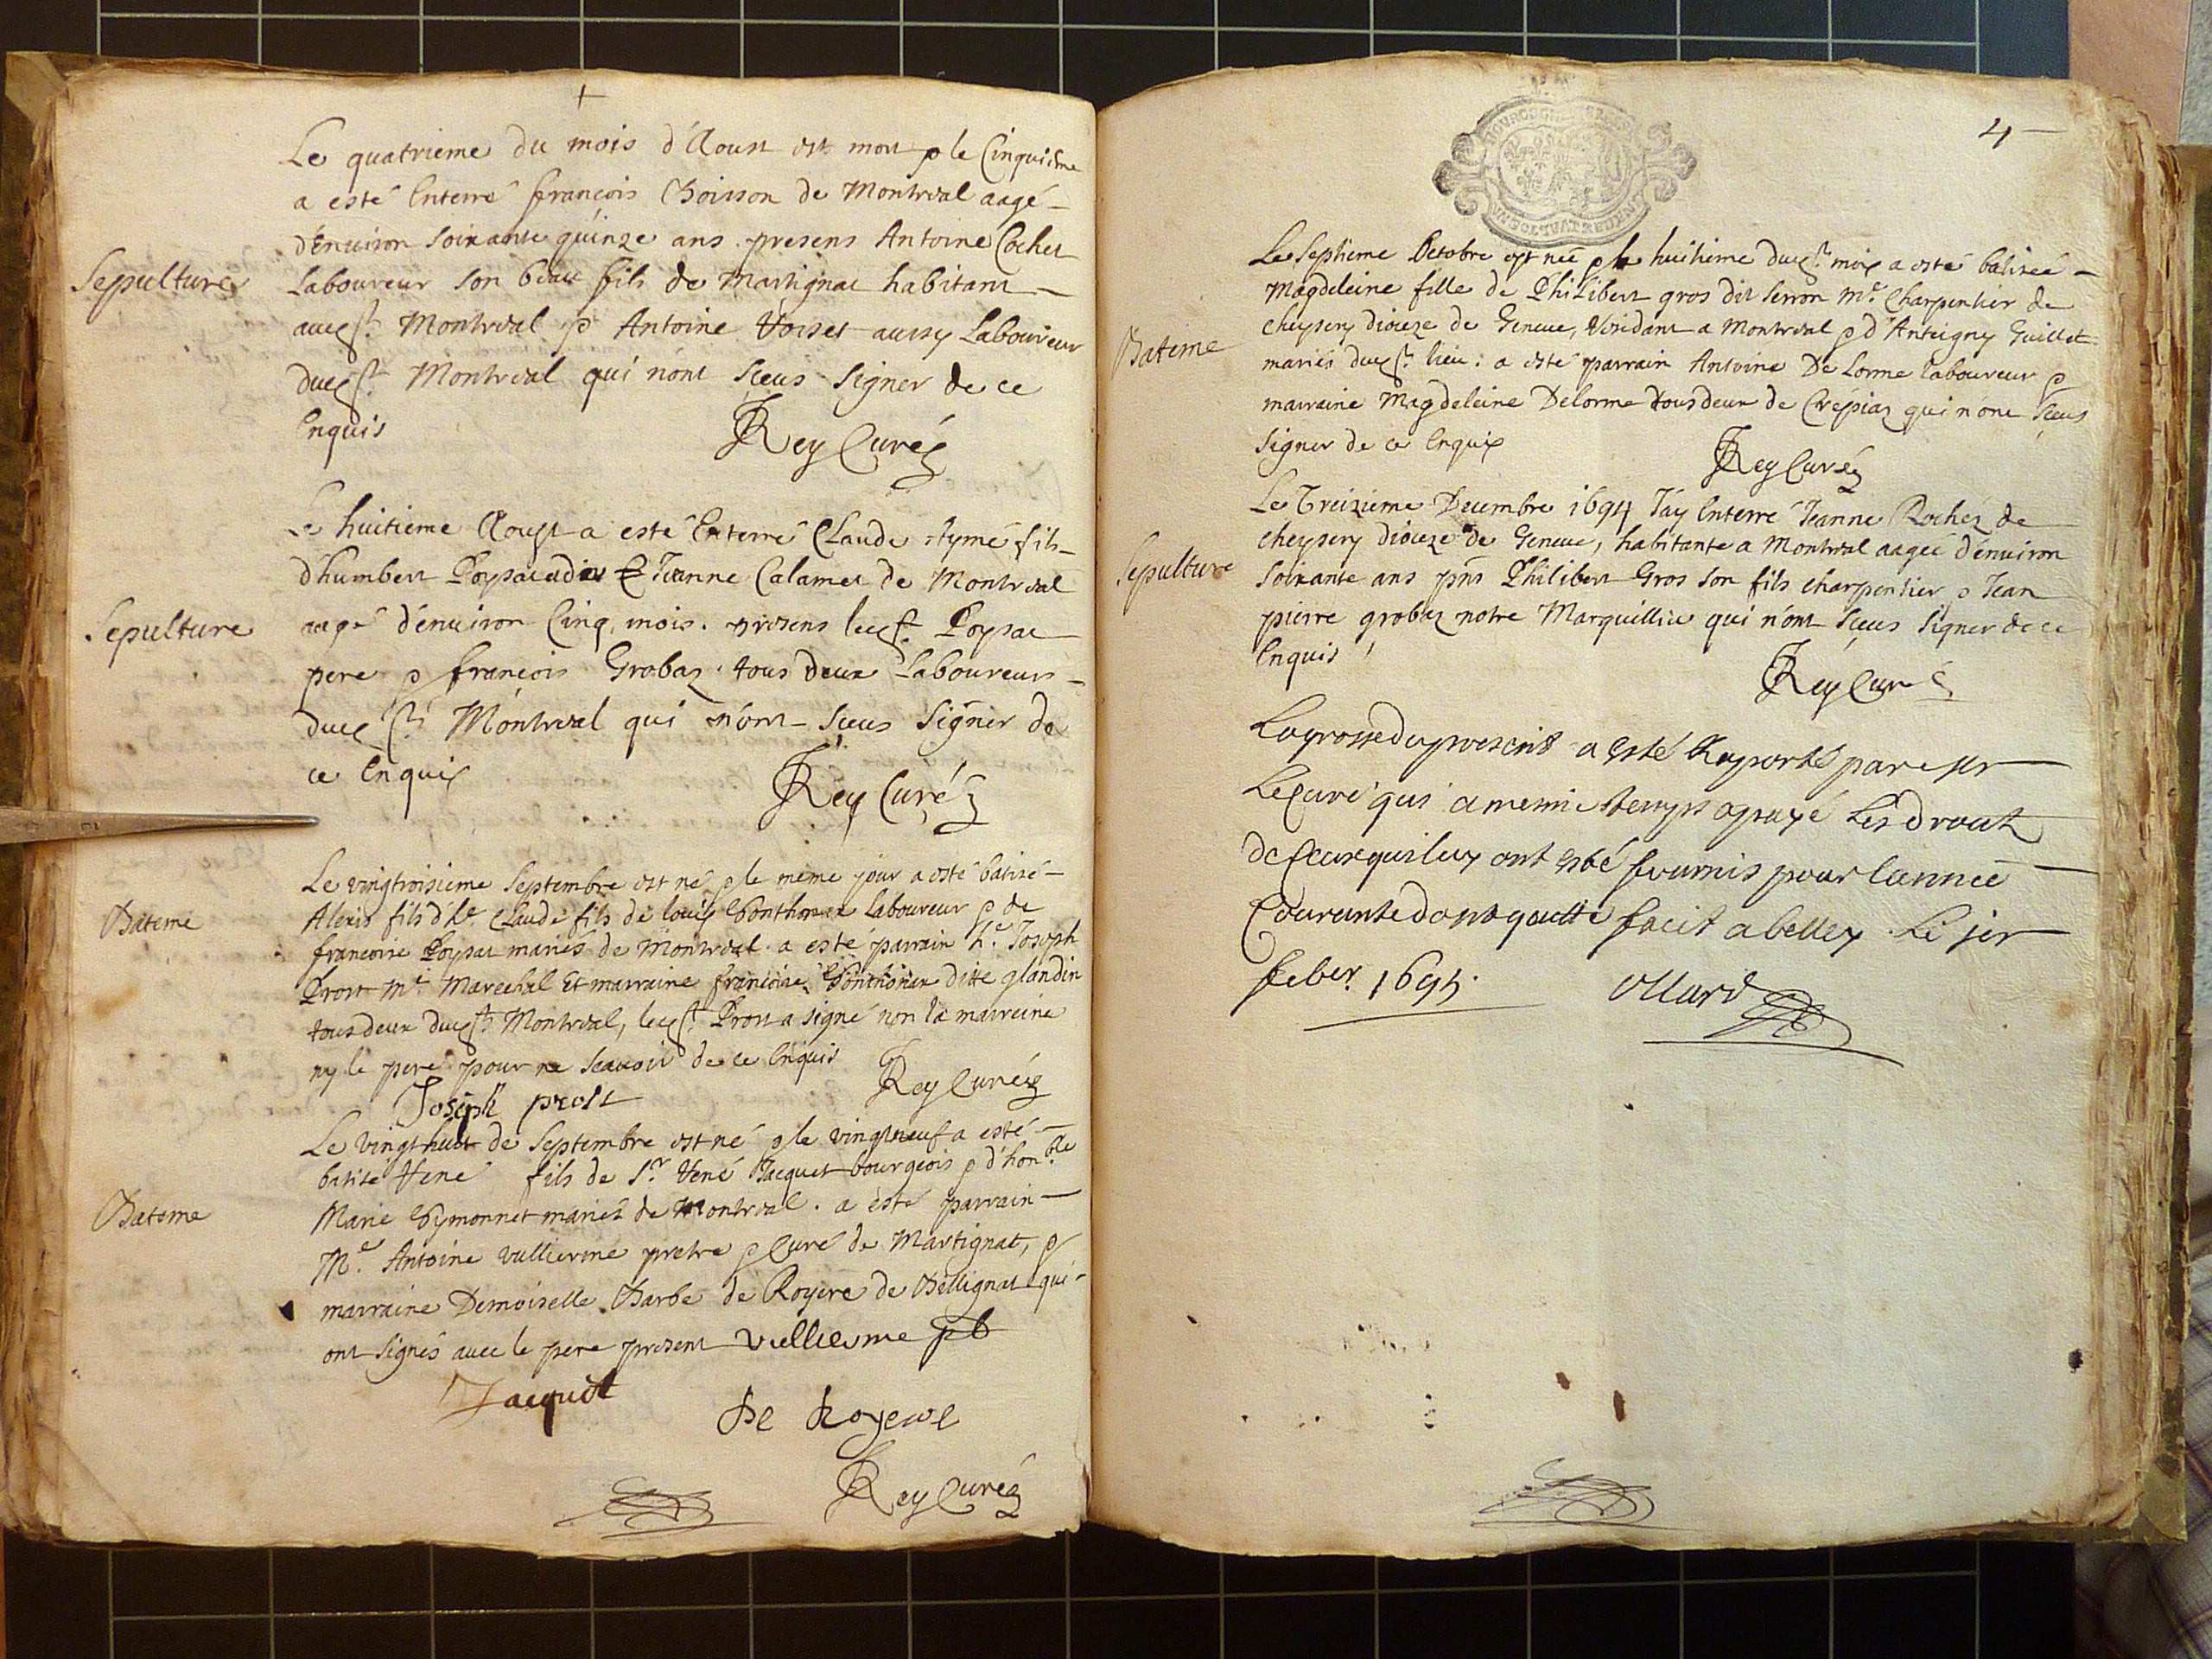 Le quatrieme du mois d'Aoust est mort & le Cinquiéme
a esté Enterré françois Boisson de Montréal aagé
d'Environ soixante quinze ans presens Antoine Cochet
Sepulture
Laboureur son beau fils de Martignat habitant
audt Montréal & Antoine Voisset aussy Laboureur
dudt Montréal qui n'ont sceus signer de ce
Enquis
Rey Curé
Le huitieme Aoust a esté Enterré Claude Aymé fils
d'humbert Poysat & Jeanne Calamet de Montréal
Sepulture
aagé d'environ Cinq mois. presens ledt Poysat
pere & françois Grobaz tous deux Laboureurs
dudt Montréal qui n'ont sceus signer de
ce Enquis
Rey Curé
Le vingtroisieme Septembre est né & le méme jour a esté batisé
Bateme
Alexis fils d'he Claude fils de Louis Laboureur & de
francoise Poysat mariés de Montréal a esté parrain he Joseph
Prost Me Marechal Et marraine francoise ditte glandin
tous deux dudt Montréal, ledt Prost a signé non la marreine
ny le pere pour ne scavoir de ce Enquis
Rey Curé
Joseph prost
Le vingthuit de Septembre est né & le vingtneuf a esté
batisé René fils de Sr René Jacquet bourgeois & d'honble
Bateme
Marie Eymonnet mariés de Montréal. a esté parrain
Me Antoine Vullierme pretre & Curé de Martignat, &
marraine Demoiselle Barbe de Royere de Bellignat qui
ont signés avec le pere present Vullierme pb
Jacquet
De Royere
Rey Curé
4
Le Septieme Octobre est née & le huitieme dudt mois a esté batiseé
Magdeleine fille de Philibert gros dit serron Me Charpentier de
cheysery diocze de Geneve, Residant a Montréal & d'Anteigny Guillet
Bateme
mariés dudt lieu: a esté parrain Antoine De Lorme laboureur &
marraine Magdeleine Delorme tous deux de Crépiaz qui n'ont sceus
signer de ce Enquis
Rey Curé
Le Treizieme Decembre 1694 J'ay Enterré Jeanne Rochez de
cheysery diocze de Geneve, habitante a Montréal aageé d'énviron
Sepulture
soixante ans pns Philibert Gros son fils charpentier & Jean
pierre grobaz notre Marquillier qui n'ont sceus signer de ce
Enquis
Rey Curé
La grosse du prescrit a esté Raporté par sr
Le Curé qui a meme temps a payé Les droits
de ceux qui luy ont esté fournis pour l'année
Courante dont quitte faict a belley Le jer
feber 1695.